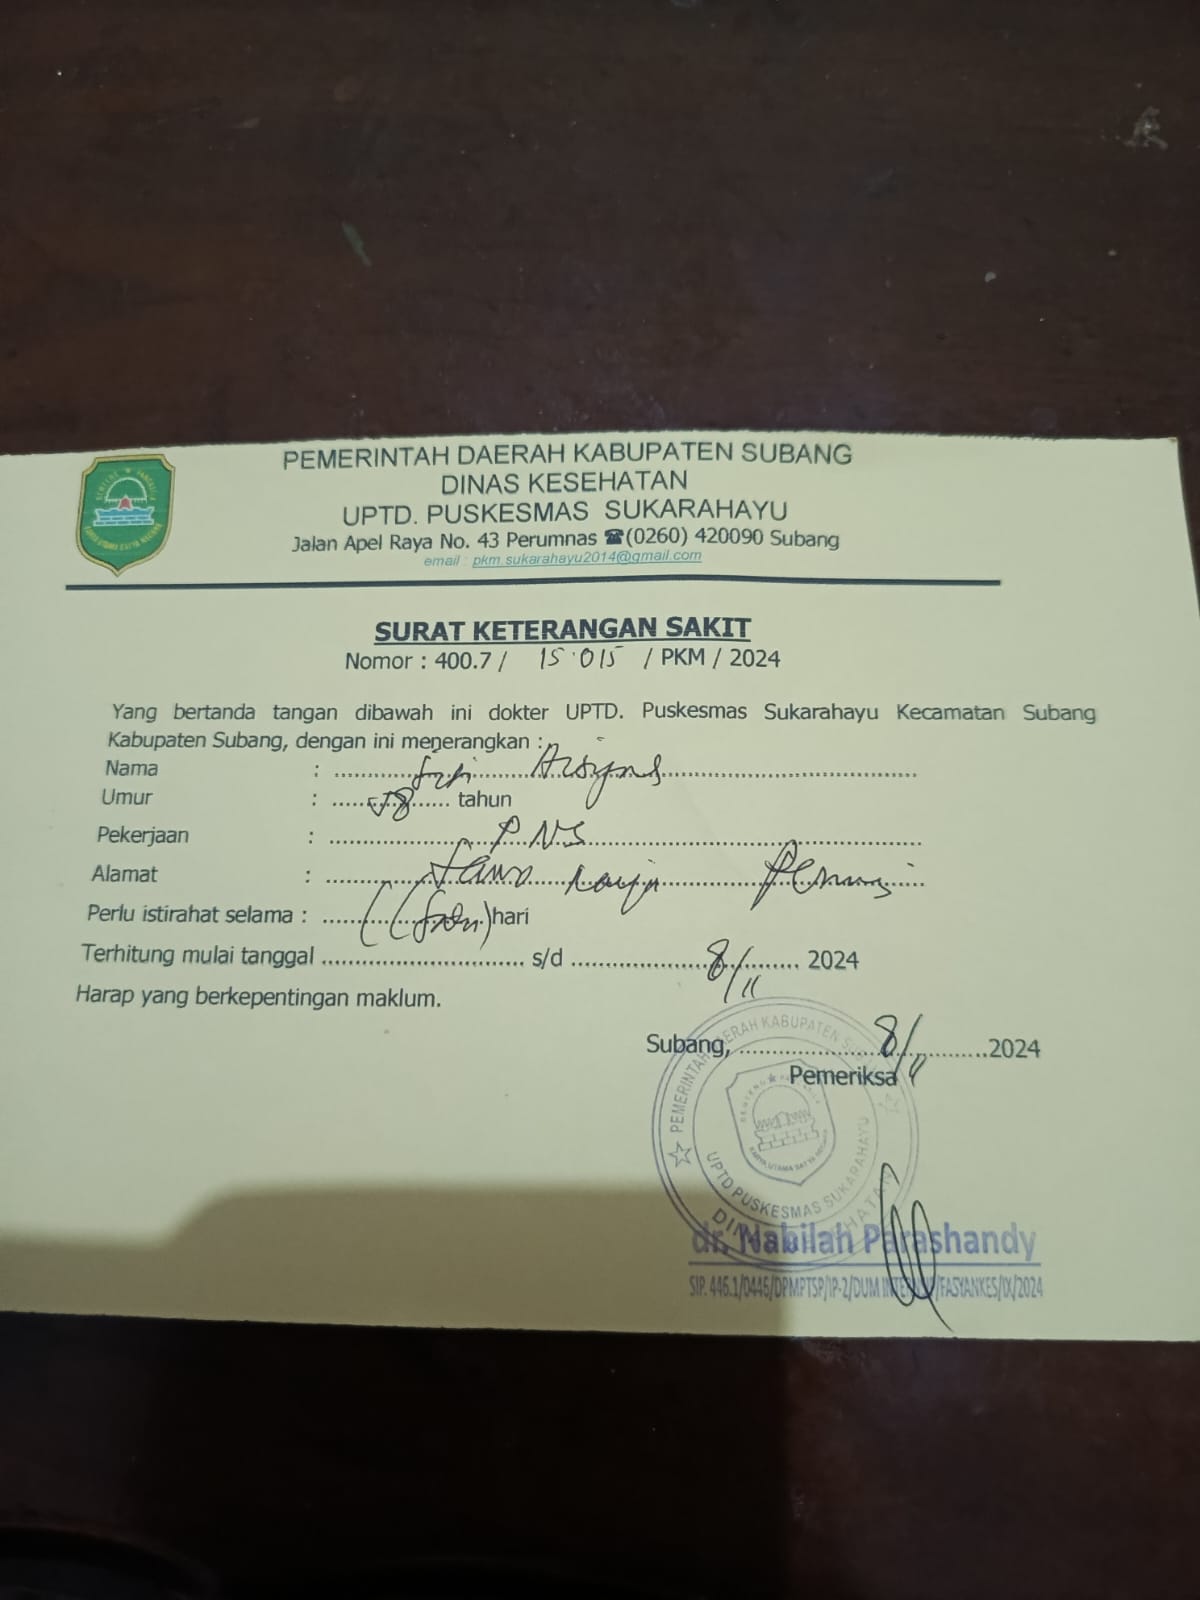 PEMERINTAH DAERAH KABUPATEN SUBANG
DINAS KESEHATAN
UPTD. PUSKESMAS SUKARAHAYU
Jalan Apel Raya No. 43 Perumnas ☎(0260) 420090 Subang
email : pkm.sukarahayu2014@gmail.com
SURAT KETERANGAN SAKIT
Nomor : 400.7 / 15.015 / PKM / 2024
Yang bertanda tangan dibawah ini dokter UPTD. Puskesmas Sukarahayu Kecamatan Subang
Kabupaten Subang, dengan ini menerangkan :
Nama :
Umur : 58 tahun
Pekerjaan : PNS
Alamat :
Perlu istirahat selama : hari
Terhitung mulai tanggal .............................. s/d .............................. 8/11 2024
Harap yang berkepentingan maklum.
Subang, 8/11 2024
Pemeriksa
PEMERINTAH DAERAH KABUPATEN SUBANG
UPTD PUSKESMAS SUKARAHAYU
DINAS KESEHATAN
dr. Nabilah Parashandy
SIP. 446.1/0446/DPMPTSP/IP-2/DUM /FASYANKES/IX/2024